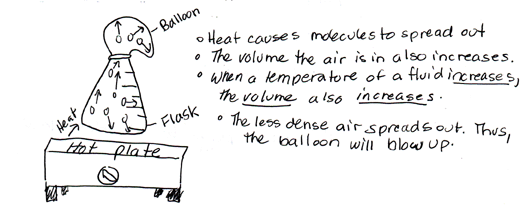 Balloon
Flask
Heat
Hot plate
Heat causes molecules to spread out
The volume the air is in also increases.
When a temperature of a fluid increases,
the volume also increases.
The less dense air spreads out. Thus,
the balloon will blow up.